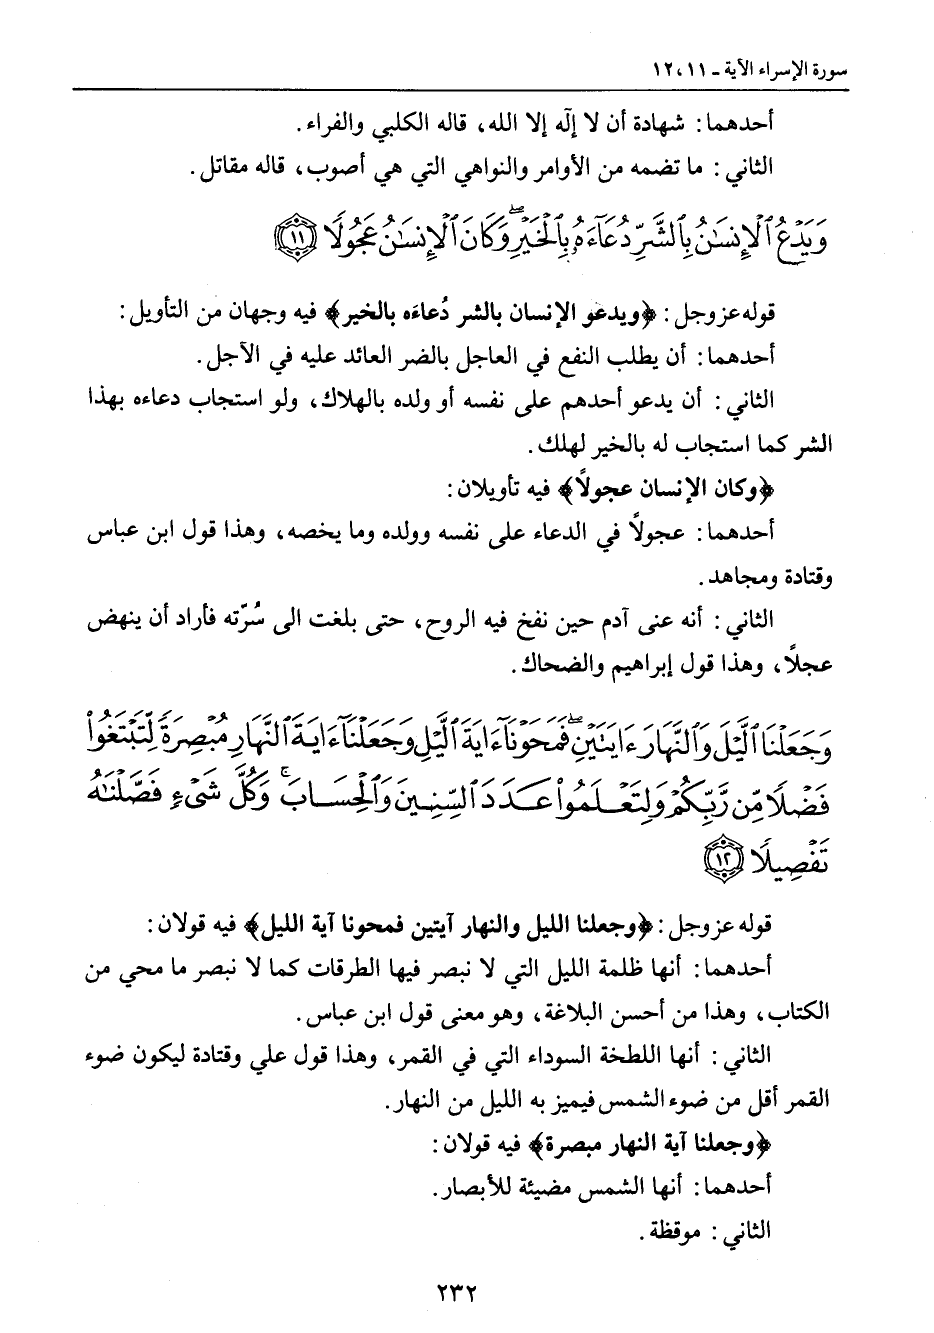 سورة الإسراء الآية ـ ١١، ١٢
أحدهما: شهادة أن لا إلٓه إلا الله، قاله الكلبي والفراء.
الثاني: ما تضمه من الأوامر والنواهي التي هي أصوب، قاله مقاتل.
وَيَدْعُ ٱلْإِنسَـٰنُ بِٱلشَّرِّ دُعَآءَهُۥ بِٱلْخَيْرِ ۖ وَكَانَ ٱلْإِنسَـٰنُ عَجُولًا ١١
قوله عز وجل: ﴿ويدعو الإنسان بالشر دُعاءَه بالخير﴾ فيه وجهان من التأويل:
أحدهما: أن يطلب النفع في العاجل بالضر العائد عليه في الآجل.
الثاني: أن يدعو أحدهم على نفسه أو ولده بالهلاك، ولو استجاب دعاءه بهذا
الشر كما استجاب له بالخير لهلك.
﴿وكان الإنسان عجولاً﴾ فيه تأويلان:
أحدهما: عجولاً في الدعاء على نفسه وولده وما يخصه، وهذا قول ابن عباس
وقتادة ومجاهد.
الثاني: أنه عنى آدم حين نفخ فيه الروح، حتى بلغت الى سُرّته فأراد أن ينهض
عجلاً، وهذا قول إبراهيم والضحاك.
وَجَعَلْنَا ٱلَّيْلَ وَٱلنَّهَارَ ءَايَتَيْنِ ۖ فَمَحَوْنَآ ءَايَةَ ٱلَّيْلِ وَجَعَلْنَآ ءَايَةَ ٱلنَّهَارِ مُبْصِرَةً لِّتَبْتَغُوا۟
فَضْلًا مِّن رَّبِّكُمْ وَلِتَعْلَمُوا۟ عَدَدَ ٱلسِّنِينَ وَٱلْحِسَابَ ۚ وَكُلَّ شَىْءٍ فَصَّلْنَـٰهُ
تَفْصِيلًا ١٢
قوله عز وجل: ﴿وجعلنا الليل والنهار آيتين فمحونا آية الليل﴾ فيه قولان:
أحدهما: أنها ظلمة الليل التي لا نبصر فيها الطرقات كما لا نبصر ما محي من
الكتاب، وهذا من أحسن البلاغة، وهو معنى قول ابن عباس.
الثاني: أنها اللطخة السوداء التي في القمر، وهذا قول علي وقتادة ليكون ضوء
القمر أقل من ضوء الشمس فيميز به الليل من النهار.
﴿وجعلنا آية النهار مبصرة﴾ فيه قولان:
أحدهما: أنها الشمس مضيئة للأبصار.
الثاني: موقظة.
٢٣٢